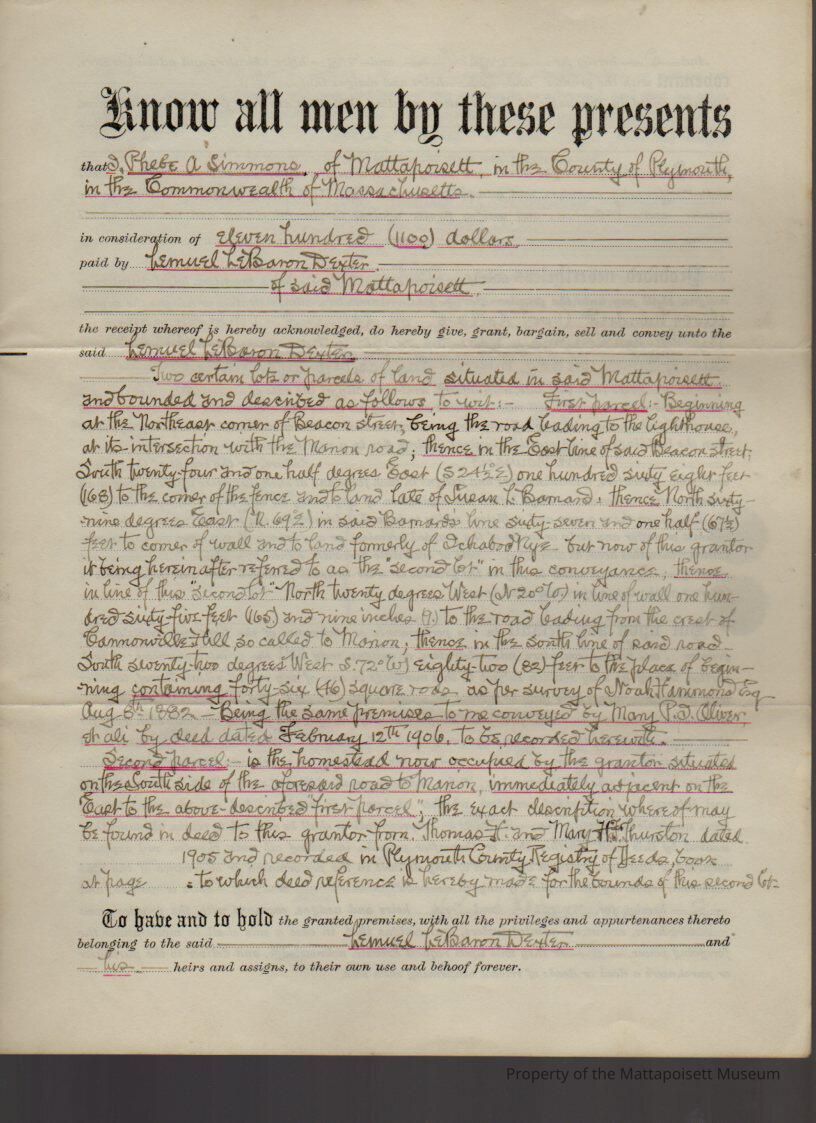 Know all men by these presents
that I, Phebe A Simmons, of Mattapoisett, in the County of Plymouth,
in the Commonwealth of Massachusetts.
in consideration of eleven hundred (1100) dollars
paid by Lemuel LeBaron Dexter
of said Mattapoisett.
the receipt whereof is hereby acknowledged, do hereby give, grant, bargain, sell and convey unto the
said Lemuel LeBaron Dexter
Two certain lots or parcels of land situated in said Mattapoisett
and bounded and described as follows to wit:- First parcel:- Beginning
at the Northeast corner of Beacon street, being the road leading to the lighthouse,
at its intersection with the Marion road; thence in the East line of said Beacon street
South twenty-four and one half degrees East (S 24½ E) one hundred sixty eight feet
(168) to the corner of the fence and to land late of Susan L. Barnard; thence North sixty-
nine degrees East (N. 69 E) in said Barnard's line sixty-seven and one half (67½)
feet to corner of wall and to land formerly of Ichabod Nye but now of this grantor
it being hereinafter referred to as the "second lot" in this conveyance; thence
in line of this "second lot" North twenty degrees West (N 20° W) in line of wall one hun-
dred sixty-five feet (165) and nine inches (9.) to the road leading from the crest of
Cannonville Hill, so called to Marion; thence in the south line of said road
South seventy-two degrees West S. 72° W) eighty-two (82) feet to the place of begin-
ning containing forty-six (46) square rods as per survey of Noah Hammond Esq
Aug 8th 1882 - Being the same premises to me conveyed by Mary P. D. Oliver,
et ali by deed dated February 12th 1906, to be recorded herewith.
Second parcel:- is the homestead now occupied by the grantor situated
on the South side of the aforesaid road to Marion, immediately adjacent on the
East to the above-described "first parcel"; the exact description whereof may
be found in deed to this grantor from Thomas H. and Mary H. Thurston dated
1905 and recorded in Plymouth County Registry of Deeds, book
at page : to which deed reference is hereby made for the bounds of this second lot-
To have and to hold the granted premises, with all the privileges and appurtenances thereto
belonging to the said Lemuel LeBaron Dexter and
his heirs and assigns, to their own use and behoof forever.
Property of the Mattapoisett Museum